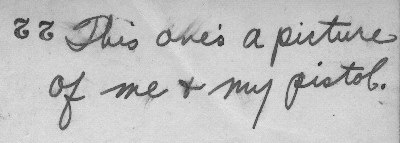 22 This one's a picture
of me + my pistol.